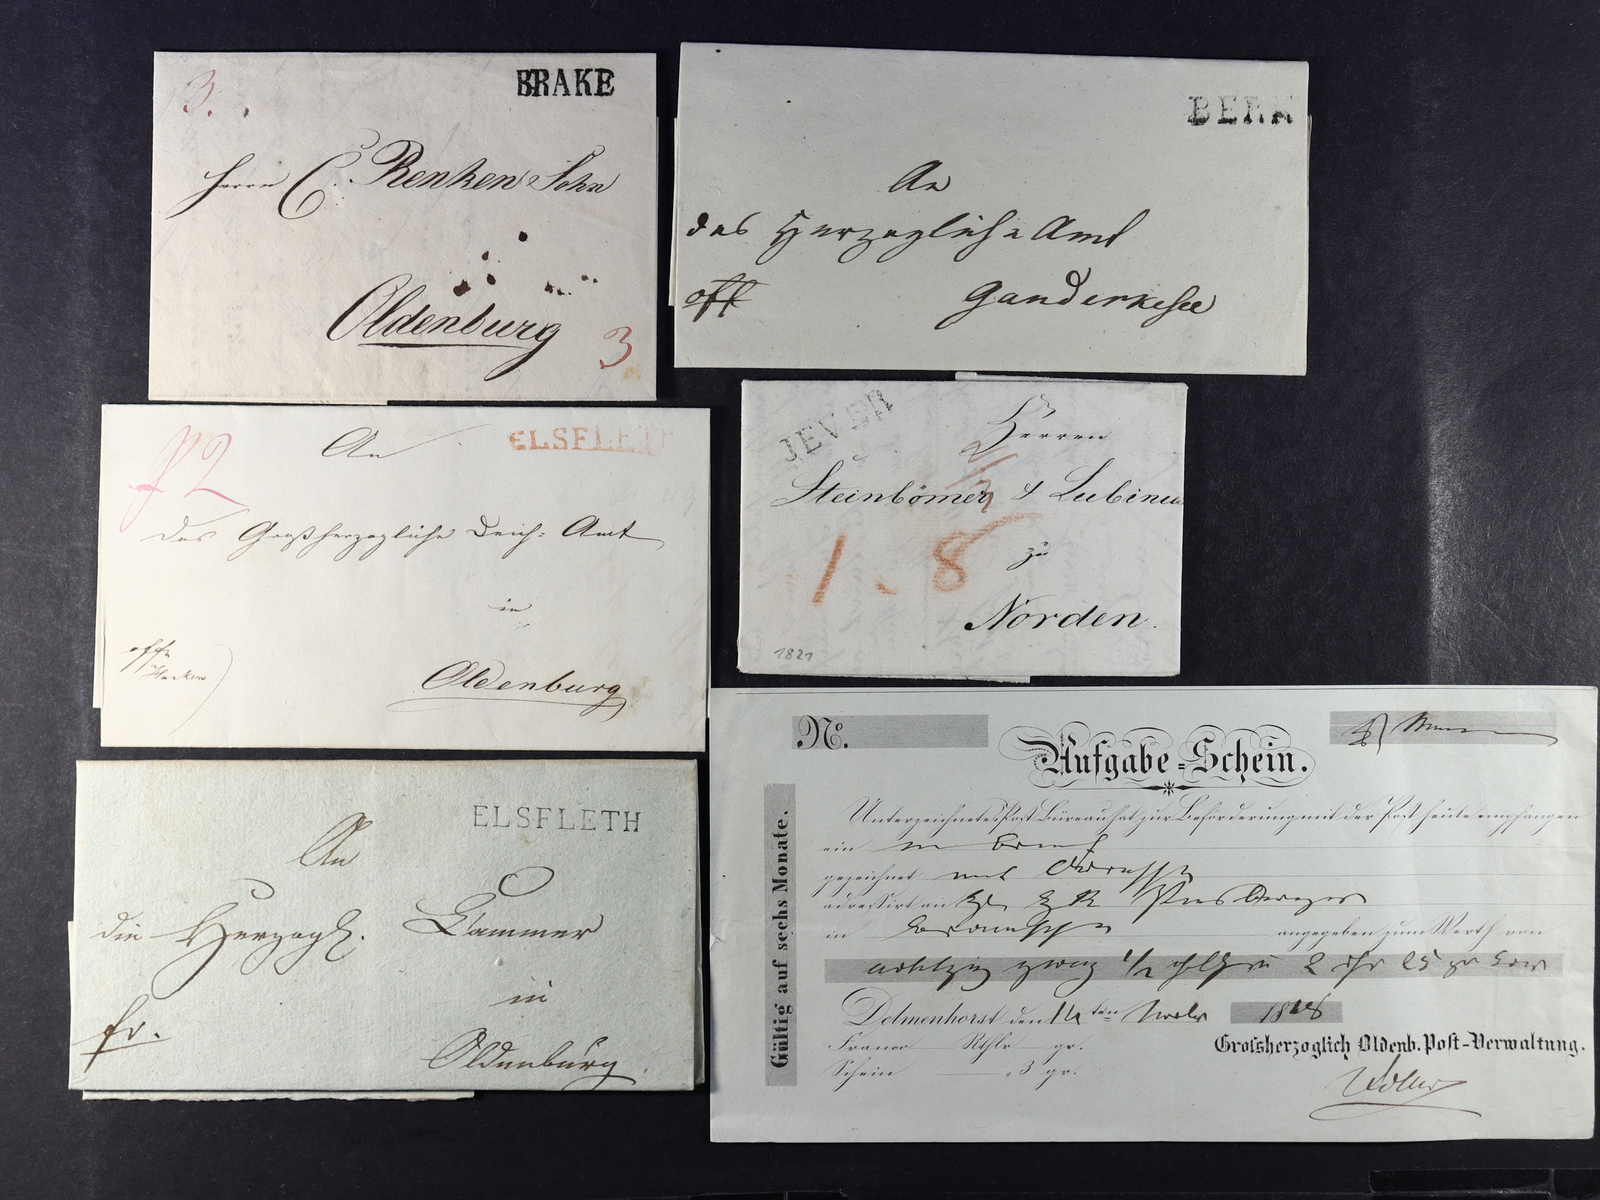 3.
BRAKE
Herrn C. Renken Sohn
Oldenburg
3
BERN
An
das Herzogliche Amt
Ganderkesee
ELSFLETH
An
das Großherzogliche Deich=Amt
in
Oldenburg
JEVER
Herren
Steinbömer & Lubinus
zu
1. 8
Norden.
1821
ELSFLETH
An
die Herzogl. Cammer
in
fr.
Oldenburg.
No.
Aufgabe=Schein.
Gültig auf sechs Monate.
Unterzeichnetes Post Büreau hat zur Beförderung mit der Post heute empfangen
ein
gezeichnet
adressirt an
in angegeben zum Werth von
Delmenhorst den 18
Franco Rthlr gr.
Schein 3 gr.
Grossherzoglich Oldenb. Post-Verwaltung.